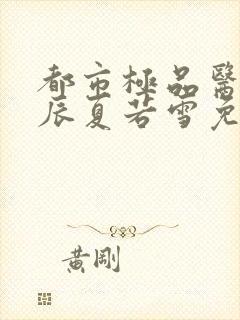 都市極品醫
辰夏若雪免
黃剛